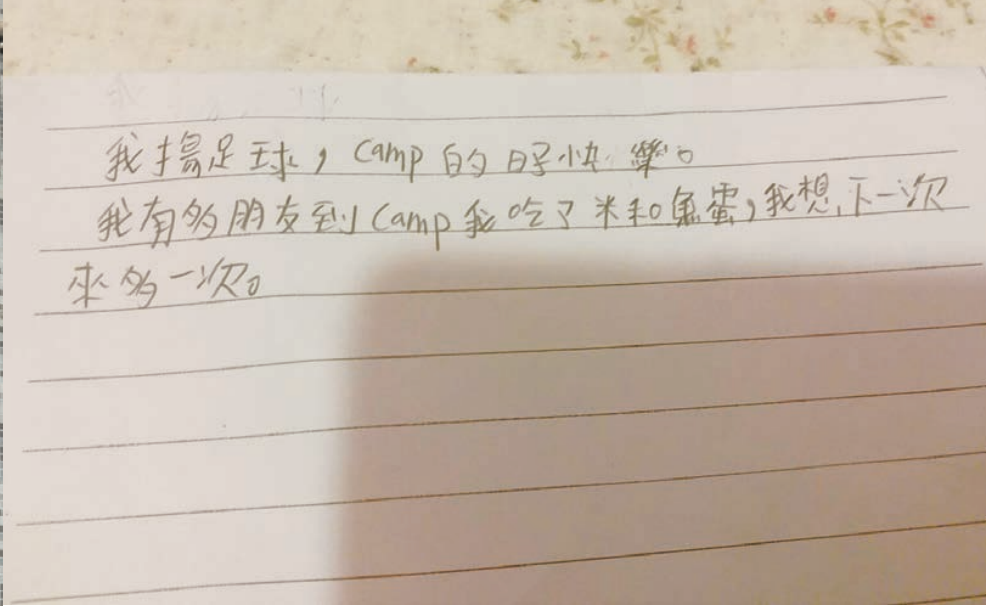 我搞足球，camp的日子快樂。
我有多朋友到camp我吃了米和魚蛋，我想下一次
來多一次。